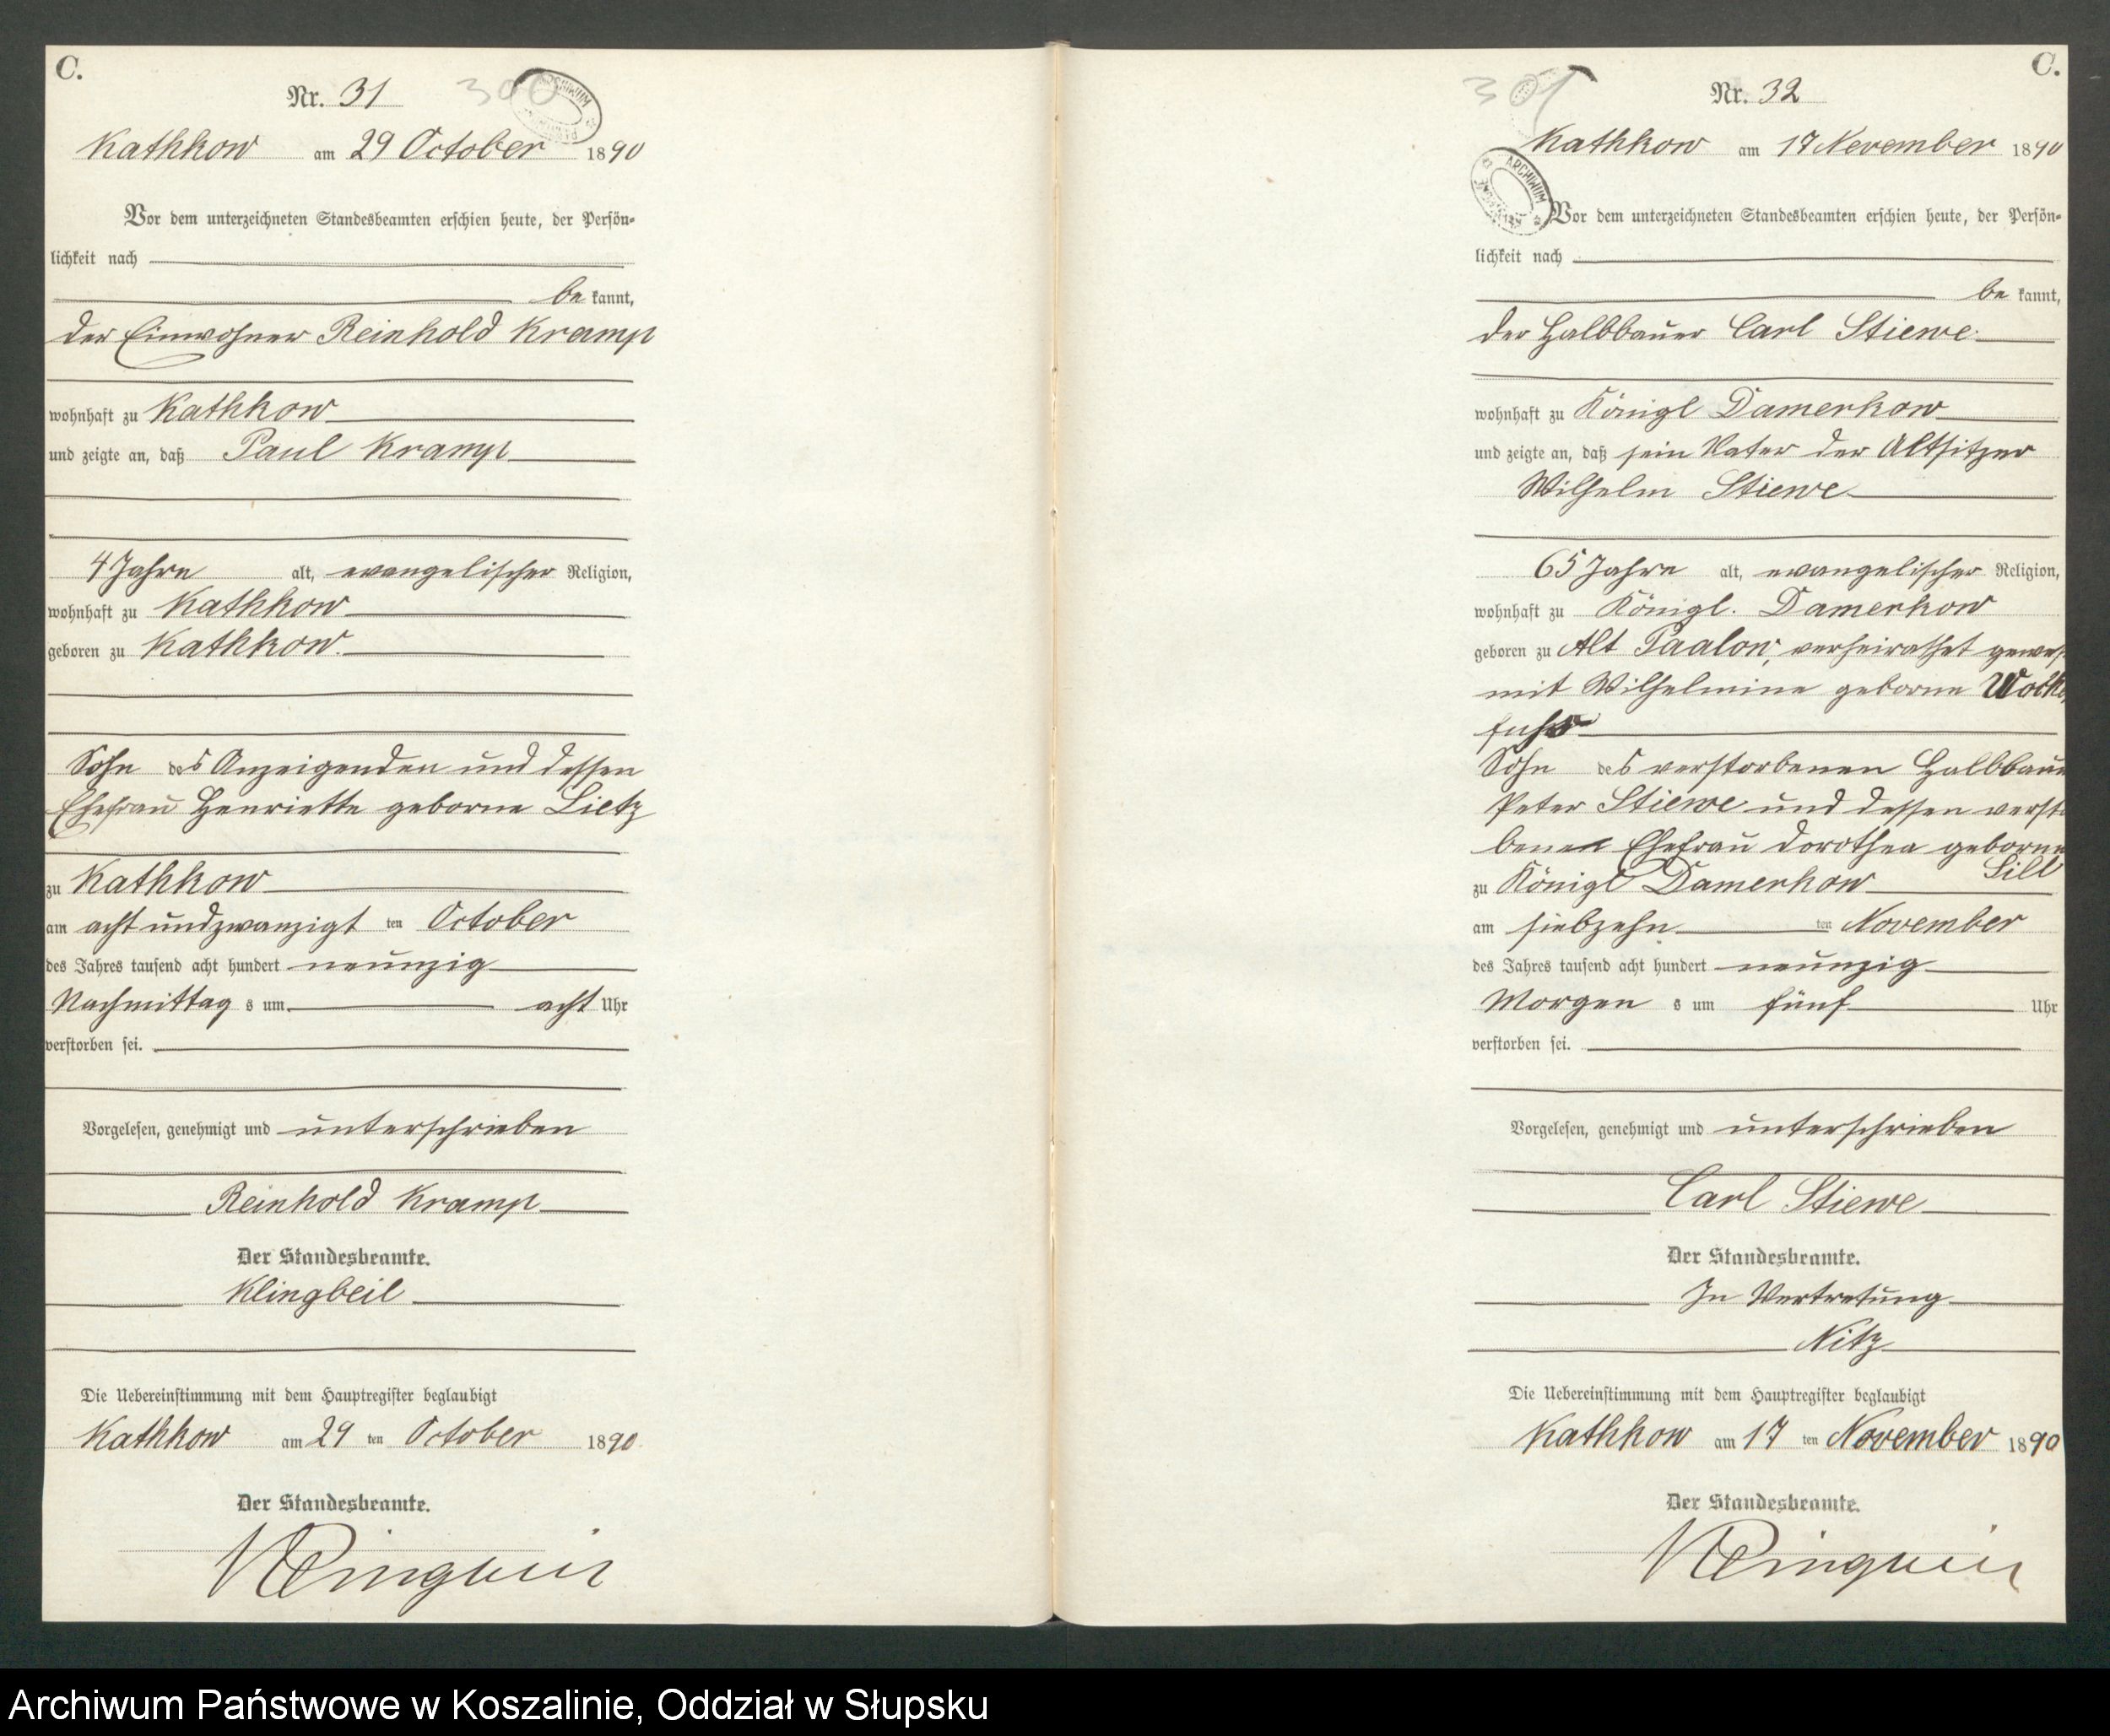 C.
Nr. 31
300
Kathkow am 29 October 1890
Vor dem unterzeichneten Standesbeamten erschien heute, der Persön-
lichkeit nach
be kannt,
der Einwohner Reinhold Kramp
wohnhaft zu Kathkow
und zeigte an, daß Paul Kramp
4 Jahre alt, evangelischer Religion,
wohnhaft zu Kathkow
geboren zu Kathkow.
Sohn des Anzeigenden und dessen
Ehefrau Henriette geborne Lietz
zu Kathkow
am acht undzwanzigt ten October
des Jahres tausend acht hundert neunzig
Nachmittag s um acht Uhr
verstorben sei.
Vorgelesen, genehmigt und unterschrieben
Reinhold Kramp
Der Standesbeamte.
Klingbeil
Die Uebereinstimmung mit dem Hauptregister beglaubigt
Kathkow am 29 ten October 1890.
Der Standesbeamte.
Klingbeil
C.
Nr. 32
301
ARCHIWUM
Kathkow am 17 November 1890
Vor dem unterzeichneten Standesbeamten erschien heute, der Persön-
lichkeit nach
be kannt,
der Halbbauer Carl Stiewe
wohnhaft zu Königl Damerkow
und zeigte an, daß sein Vater der Altsitzer
Wilhelm Stiewe
65 Jahre alt, evangelischer Religion,
wohnhaft zu Königl. Damerkow
geboren zu Alt Paalow, verheirathet gewes
mit Wilhelmine geborne
Sohn des verstorbenen Halbbaue
Peter Stiewe und dessen versto
benen Ehefrau Dorothea geborne
Sill
zu Königl Damerkow
am siebzehn ten November
des Jahres tausend acht hundert neunzig
Morgen s um fünf Uhr
verstorben sei.
Vorgelesen, genehmigt und unterschrieben
Carl Stiewe
Der Standesbeamte.
In Vertretung
Nitz
Die Uebereinstimmung mit dem Hauptregister beglaubigt
Kathkow am 17 ten November 1890
Der Standesbeamte.
Klingbeil
Archiwum Państwowe w Koszalinie, Oddział w Słupsku